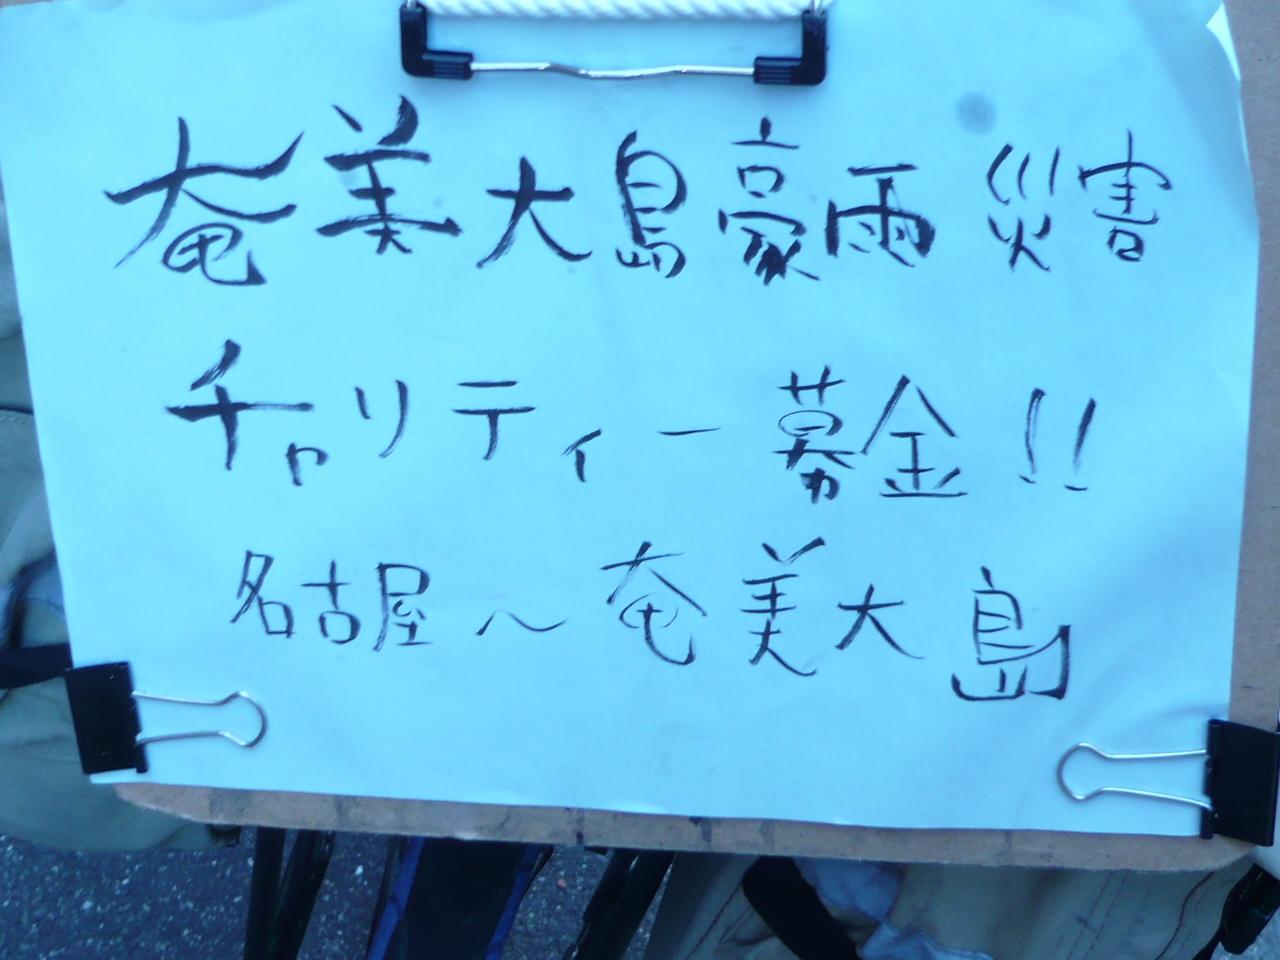 奄美大島豪雨災害
チャリティー募金!!
名古屋～奄美大島